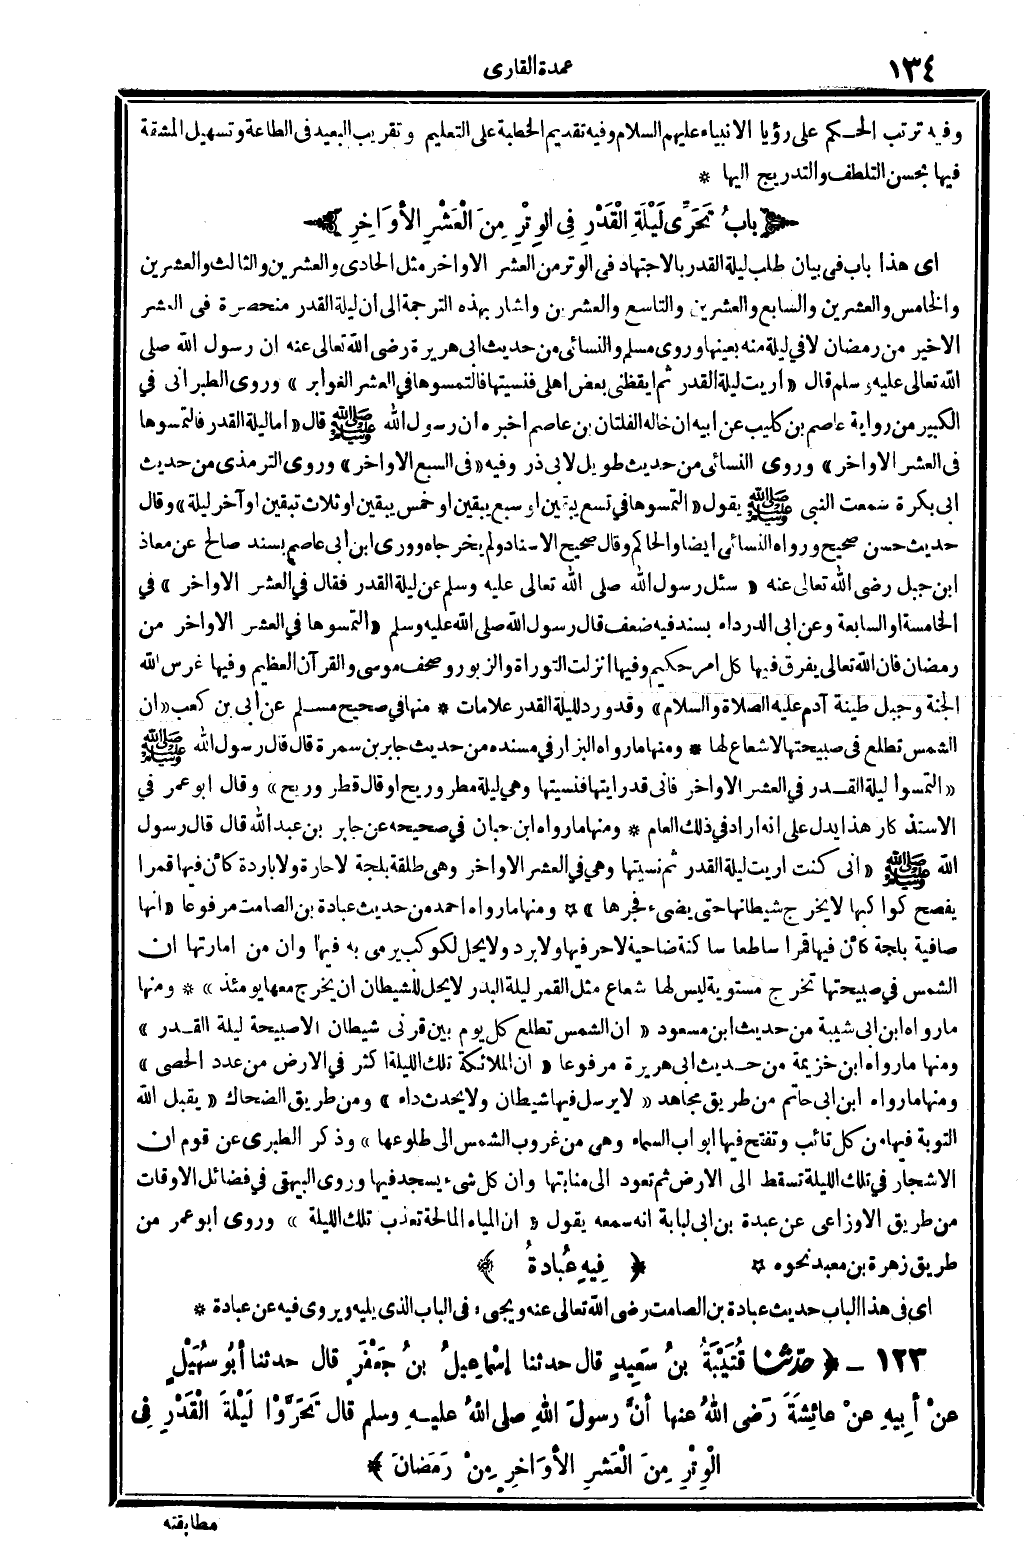 ١٣٤
عمدة القارى
وفيه ترتب الحكم على رؤيا الانبياء عليهم السلام وفيه تقديم الخطبة على التعليم وتقريب البعيد فى الطاعة وتسهيل المشقة
فيها بحسن التلطف والتدريج اليها *
﴿ بابُ تَحَرِّى لَيْلَةِ الْقَدْرِ فِى الوِتْرِ مِنَ الْعَشْرِ الأَوَاخِرِ ﴾
اى هذا باب فى بيان طلب ليلة القدر بالاجتهاد فى الوتر من العشر الاواخر مثل الحادى والعشرين والثالث والعشرين
والخامس والعشرين والسابع والعشرين والتاسع والعشرين واشار بهذه الترجمة الى ان ليلة القدر منحصرة فى العشر
الاخير من رمضان لا فى ليلة منه بعينها وروى مسلم والنسائى من حديث ابى هريرة رضى الله تعالى عنه ان رسول الله صلى
الله تعالى عليه وسلم قال « اريت ليلة القدر ثم ايقظنى بعض اهلى فنسيتها فالتمسوها فى العشر الغوابر » وروى الطبرانى فى
الكبير من رواية عاصم بن كليب عن أبيه ان خاله الفلتان بن عاصم اخبره ان رسول الله ﷺ قال « أما ليلة القدر فالتمسوها
فى العشر الاواخر » وروى النسائى من حديث طويل لابى ذر وفيه « فى السبع الاواخر » وروى الترمذى من حديث
ابى بكرة سمعت النبى ﷺ يقول « التمسوها فى تسع يبقين او سبع يبقين او خمس يبقين او ثلاث تبقين او آخر ليلة » وقال
حديث حسن صحيح ورواه النسائى ايضا والحاكم وقال صحيح الاسناد ولم يخرجاه وروى ابن ابى عاصم بسند صالح عن معاذ
ابن جبل رضى الله تعالى عنه « سئل رسول الله صلى الله تعالى عليه وسلم عن ليلة القدر فقال فى العشر الاواخر » فى
الخامسة او السابعة وعن ابى الدرداء بسند فيه ضعف قال رسول الله صلى الله عليه وسلم « التمسوها فى العشر الاواخر من
رمضان فان الله تعالى يفرق فيها كل امر حكيم وفيها انزلت التوراة والزبور وصحف موسى والقرآن العظيم وفيها غرس الله
الجنة وجبل طينة آدم عليه الصلاة والسلام » وقد ورد لليلة القدر علامات * منها فى صحيح مسلم عن أبى بن كعب « ان
الشمس تطلع فى صبيحتها لاشعاع لها * ومنها مارواه البزار فى مسنده من حديث جابر بن سمرة قال قال رسول الله ﷺ
« التمسوا ليلة القدر فى العشر الاواخر فانى قد رايتها فنسيتها وهى ليلة مطر وريح او قال قطر وريح » وقال ابو عمر فى
الاستذكار هذا يدل على انه اراد فى ذلك العام * ومنها مارواه ابن حبان فى صحيحه عن جابر بن عبد الله قال قال رسول
الله ﷺ « انى كنت اريت ليلة القدر ثم نسيتها وهى فى العشر الاواخر وهى طلقة بلجة لا حارة ولا باردة كأن فيها قمرا
يفصح كواكبها لا يخرج شيطانها حتى يضىء فجرها » * ومنها مارواه احمد من حديث عبادة بن الصامت مرفوعا « انها
صافية بلجة كأن فيها قمرا ساطعا ساكنة ضاحية لا حر فيها ولا برد ولا يحل لكوكب يرمى به فيها وان من امارتها ان
الشمس فى صبيحتها تخرج مستوية ليس لها شعاع مثل القمر ليلة البدر لا يحل للشيطان ان يخرج معها يومئذ » * ومنها
مارواه ابن ابى شيبة من حديث ابن مسعود « ان الشمس تطلع كل يوم بين قرنى شيطان الا صبيحة ليلة القدر »
ومنها مارواه ابن خزيمة من حديث ابى هريرة مرفوعا « ان الملائكة تلك الليلة اكثر فى الارض من عدد الحصى »
ومنها مارواه ابن ابى حاتم من طريق مجاهد « لا يرسل فيها شيطان ولا يحدث داء » ومن طريق الضحاك « يقبل الله
التوبة فيها من كل تائب وتفتح فيها ابواب السماء وهى من غروب الشمس الى طلوعها » وذكر الطبرى عن قوم ان
الاشجار فى تلك الليلة تسقط الى الارض ثم تعود الى منابتها وان كل شىء يسجد فيها وروى البيهقى فى فضائل الاوقات
من طريق الاوزاعى عن عبدة بن ابى لبابة انه سمعه يقول « ان المياه المالحة تعذب تلك الليلة » وروى ابو عمر من
طريق زهرة بن معبد نحوه * ﴿ فِيهِ عُبَادةُ ﴾
اى فى هذا الباب حديث عبادة بن الصامت رضى الله تعالى عنه ويجىء فى الباب الذى يليه ويروى فيه عن عبادة *
١٢٣ - ﴿ حدّثنا قُتَيْبَةُ بنُ سَعِيدٍ قال حدثنا إسْمَاعِيلُ بنُ جَعْفَرٍ قال حدثنا أبُو سُهَيْلٍ
عنْ أبِيهِ عنْ عائِشَةَ رَضى اللهُ عنها أنَّ رسولَ اللهِ صلى اللهُ عليهِ وسلم قال تَحَرَّوْا لَيْلَةَ الْقَدْرِ فِى
الْوِتْرِ مِنَ الْعَشْرِ الأَوَاخِرِ مِنْ رَمَضَانَ ﴾ *
مطابقته